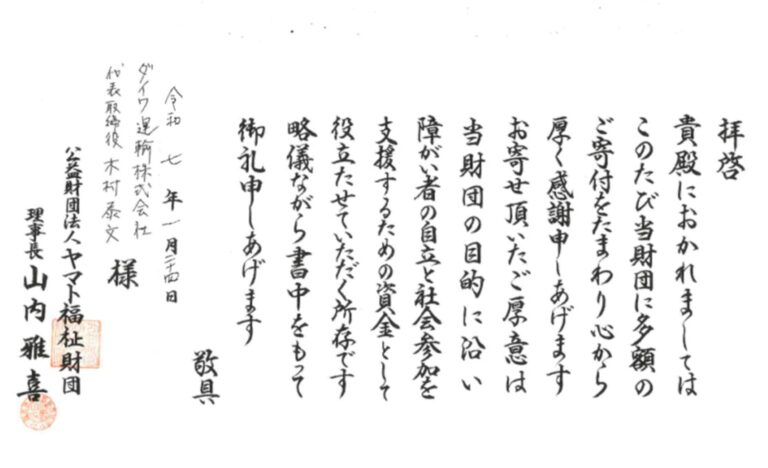 拝啓
貴殿におかれましては
このたび当財団に多額の
ご寄付をたまわり心から
厚く感謝申しあげます
お寄せ頂いたご厚意は
当財団の目的に沿い
障がい者の自立と社会参加を
支援するための資金として
役立たせていただく所存です
略儀ながら書中をもって
御礼申しあげます
敬具
令和 七 年 一 月二十四日
ダイワ運輸株式会社
代表取締役 木村泰文 様
公益財団法人ヤマト福祉財団
理事長 山内雅喜